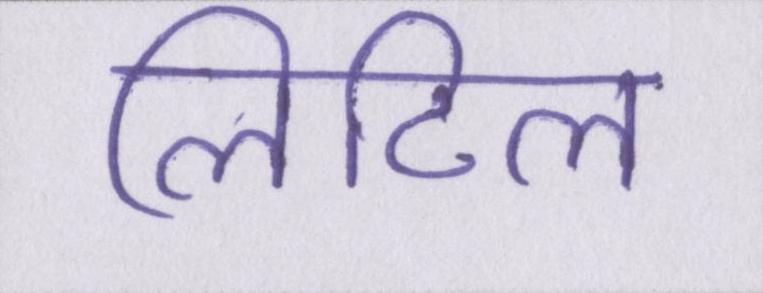 लिटिल